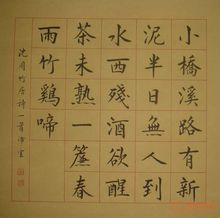 小橋溪路有新
泥半日無人到
水西殘酒欲醒
茶未熟一簾春
雨竹鷄啼
沈周竹居詩一首